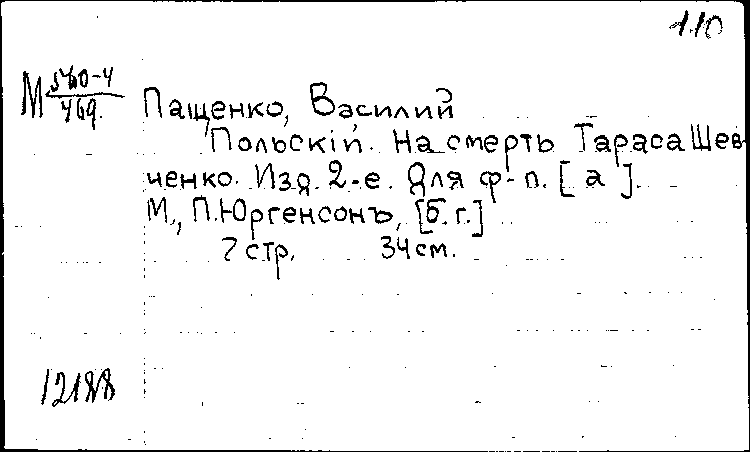 1.10
М 560-4
469.
Пащенко, Василий
Польскій. На смерть Тараса Шев-
ченко. Изд. 2-е. Для ф-п. [а].
М., П. Юргенсонъ, [б.г.]
7 стр. 34 см.
12188